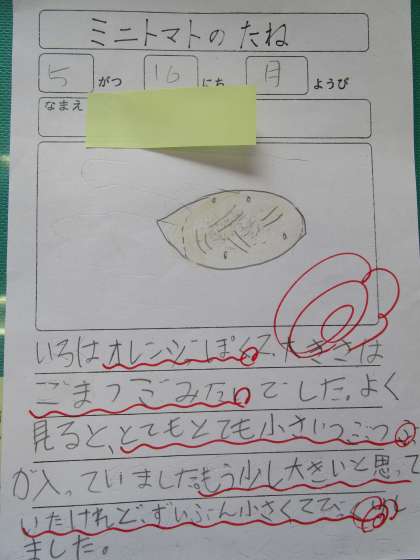 ミニトマトのたね
5がつ16にち月ようび
なまえ
いろはオレンジっぽくて、大きさは
ごまつぶみたいでした。よく
見ると、とてもとても小さいつぶつぶ
が入っていました。もう少し大きいと思って
いたけれど、ずいぶん小さくて
ました。